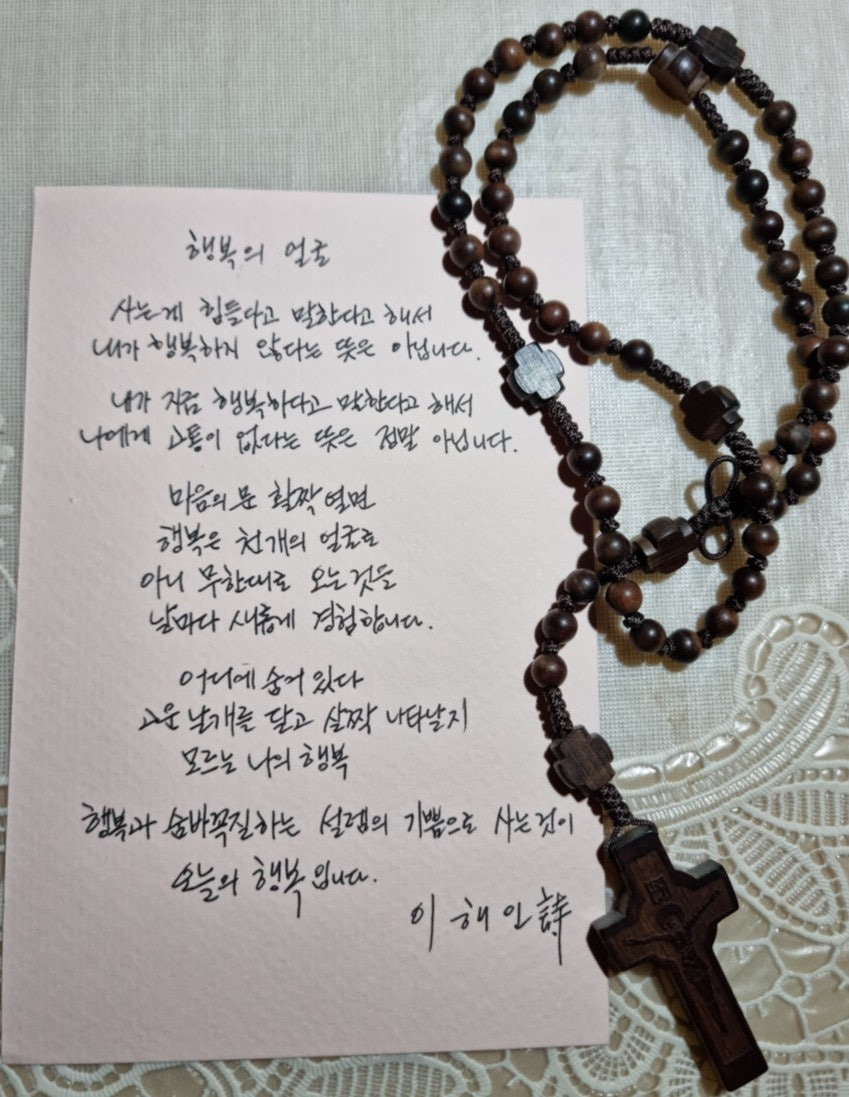 행복의 얼굴
사는게 힘들다고 말한다고 해서
내가 행복하지 않다는 뜻은 아닙니다.
내가 지금 행복하다고 말한다고 해서
나에게 고통이 없다는 뜻은 정말 아닙니다.
마음의 문 활짝 열면
행복은 천개의 얼굴로
아니 무한대로 오는것을
날마다 새롭게 경험합니다.
어디에 숨어 있다
고운 날개를 달고 살짝 나타날지
모르는 나의 행복
행복과 숨바꼭질하는 설렘의 기쁨으로 사는것이
오늘의 행복입니다.
이해인 詩